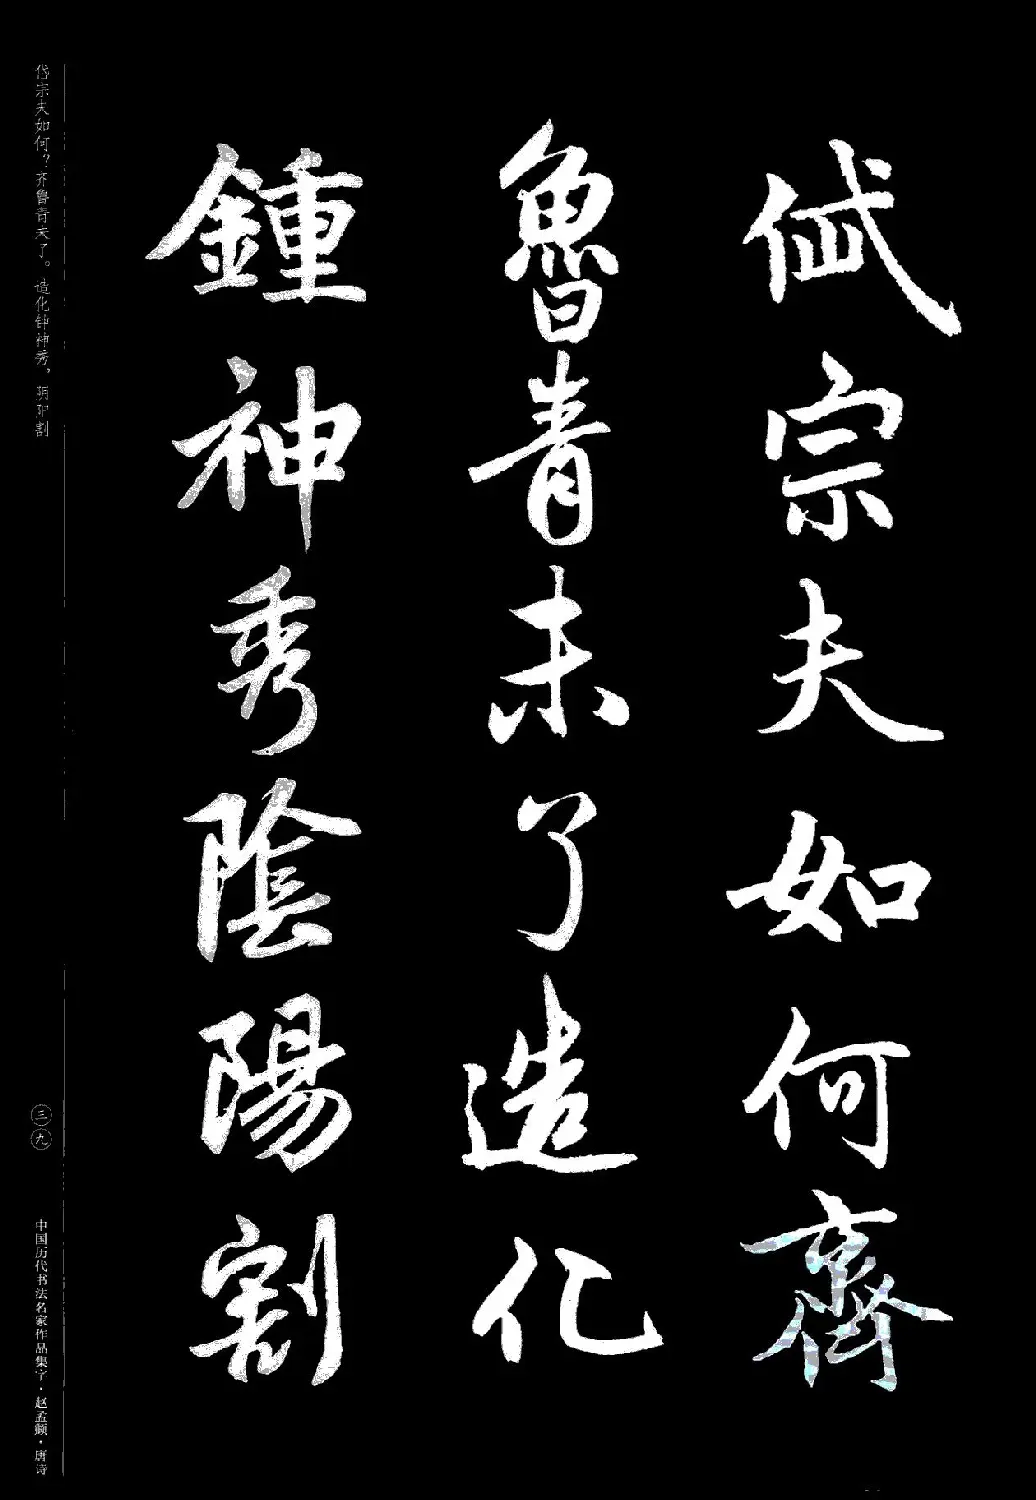 岱宗夫如何齊
魯青未了造化
鍾神秀陰陽割
岱宗夫如何？齐鲁青未了。造化钟神秀，阴阳割
三九
中国历代书法名家作品集字·赵孟頫·唐诗